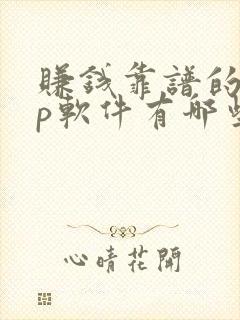 賺錢靠譜的
p軟件有哪些
心晴花開